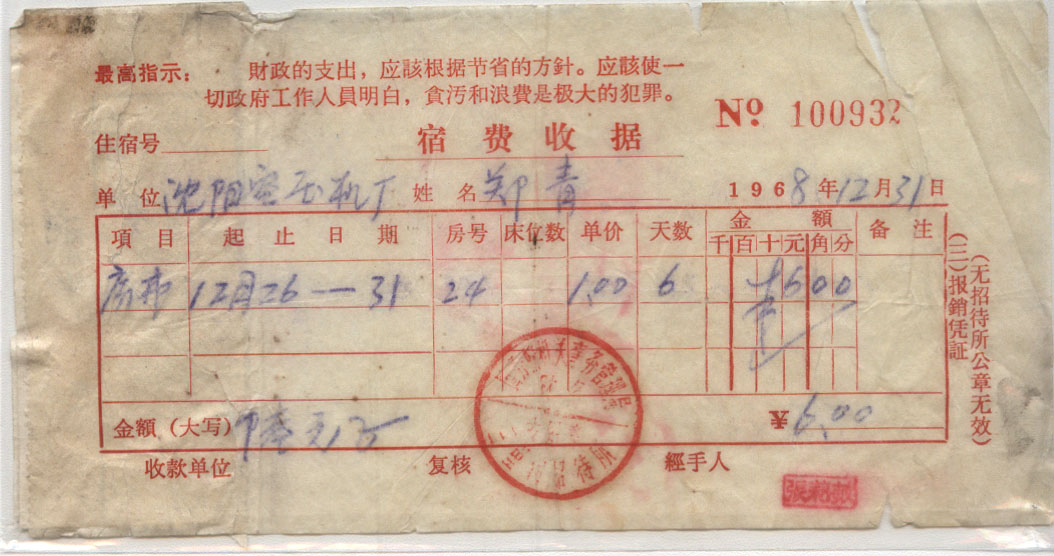 最高指示： 財政的支出，应該根据节省的方針。应該使一
切政府工作人員明白，貪汚和浪費是极大的犯罪。
№ 100932
住宿号
宿費收据
单位 沈阳空压机厂 姓名 郑青 1968年12月31日
項目 起止日期 房号 床位数 单价 天数 金額 备注
千 百 十 元 角 分
12月26—31 24 1.00 6 6 0 0
金額（大写） 陆元 ¥ 6.00
收款单位 复核 經手人
(三)报銷凭証
（无招待所公章无效）